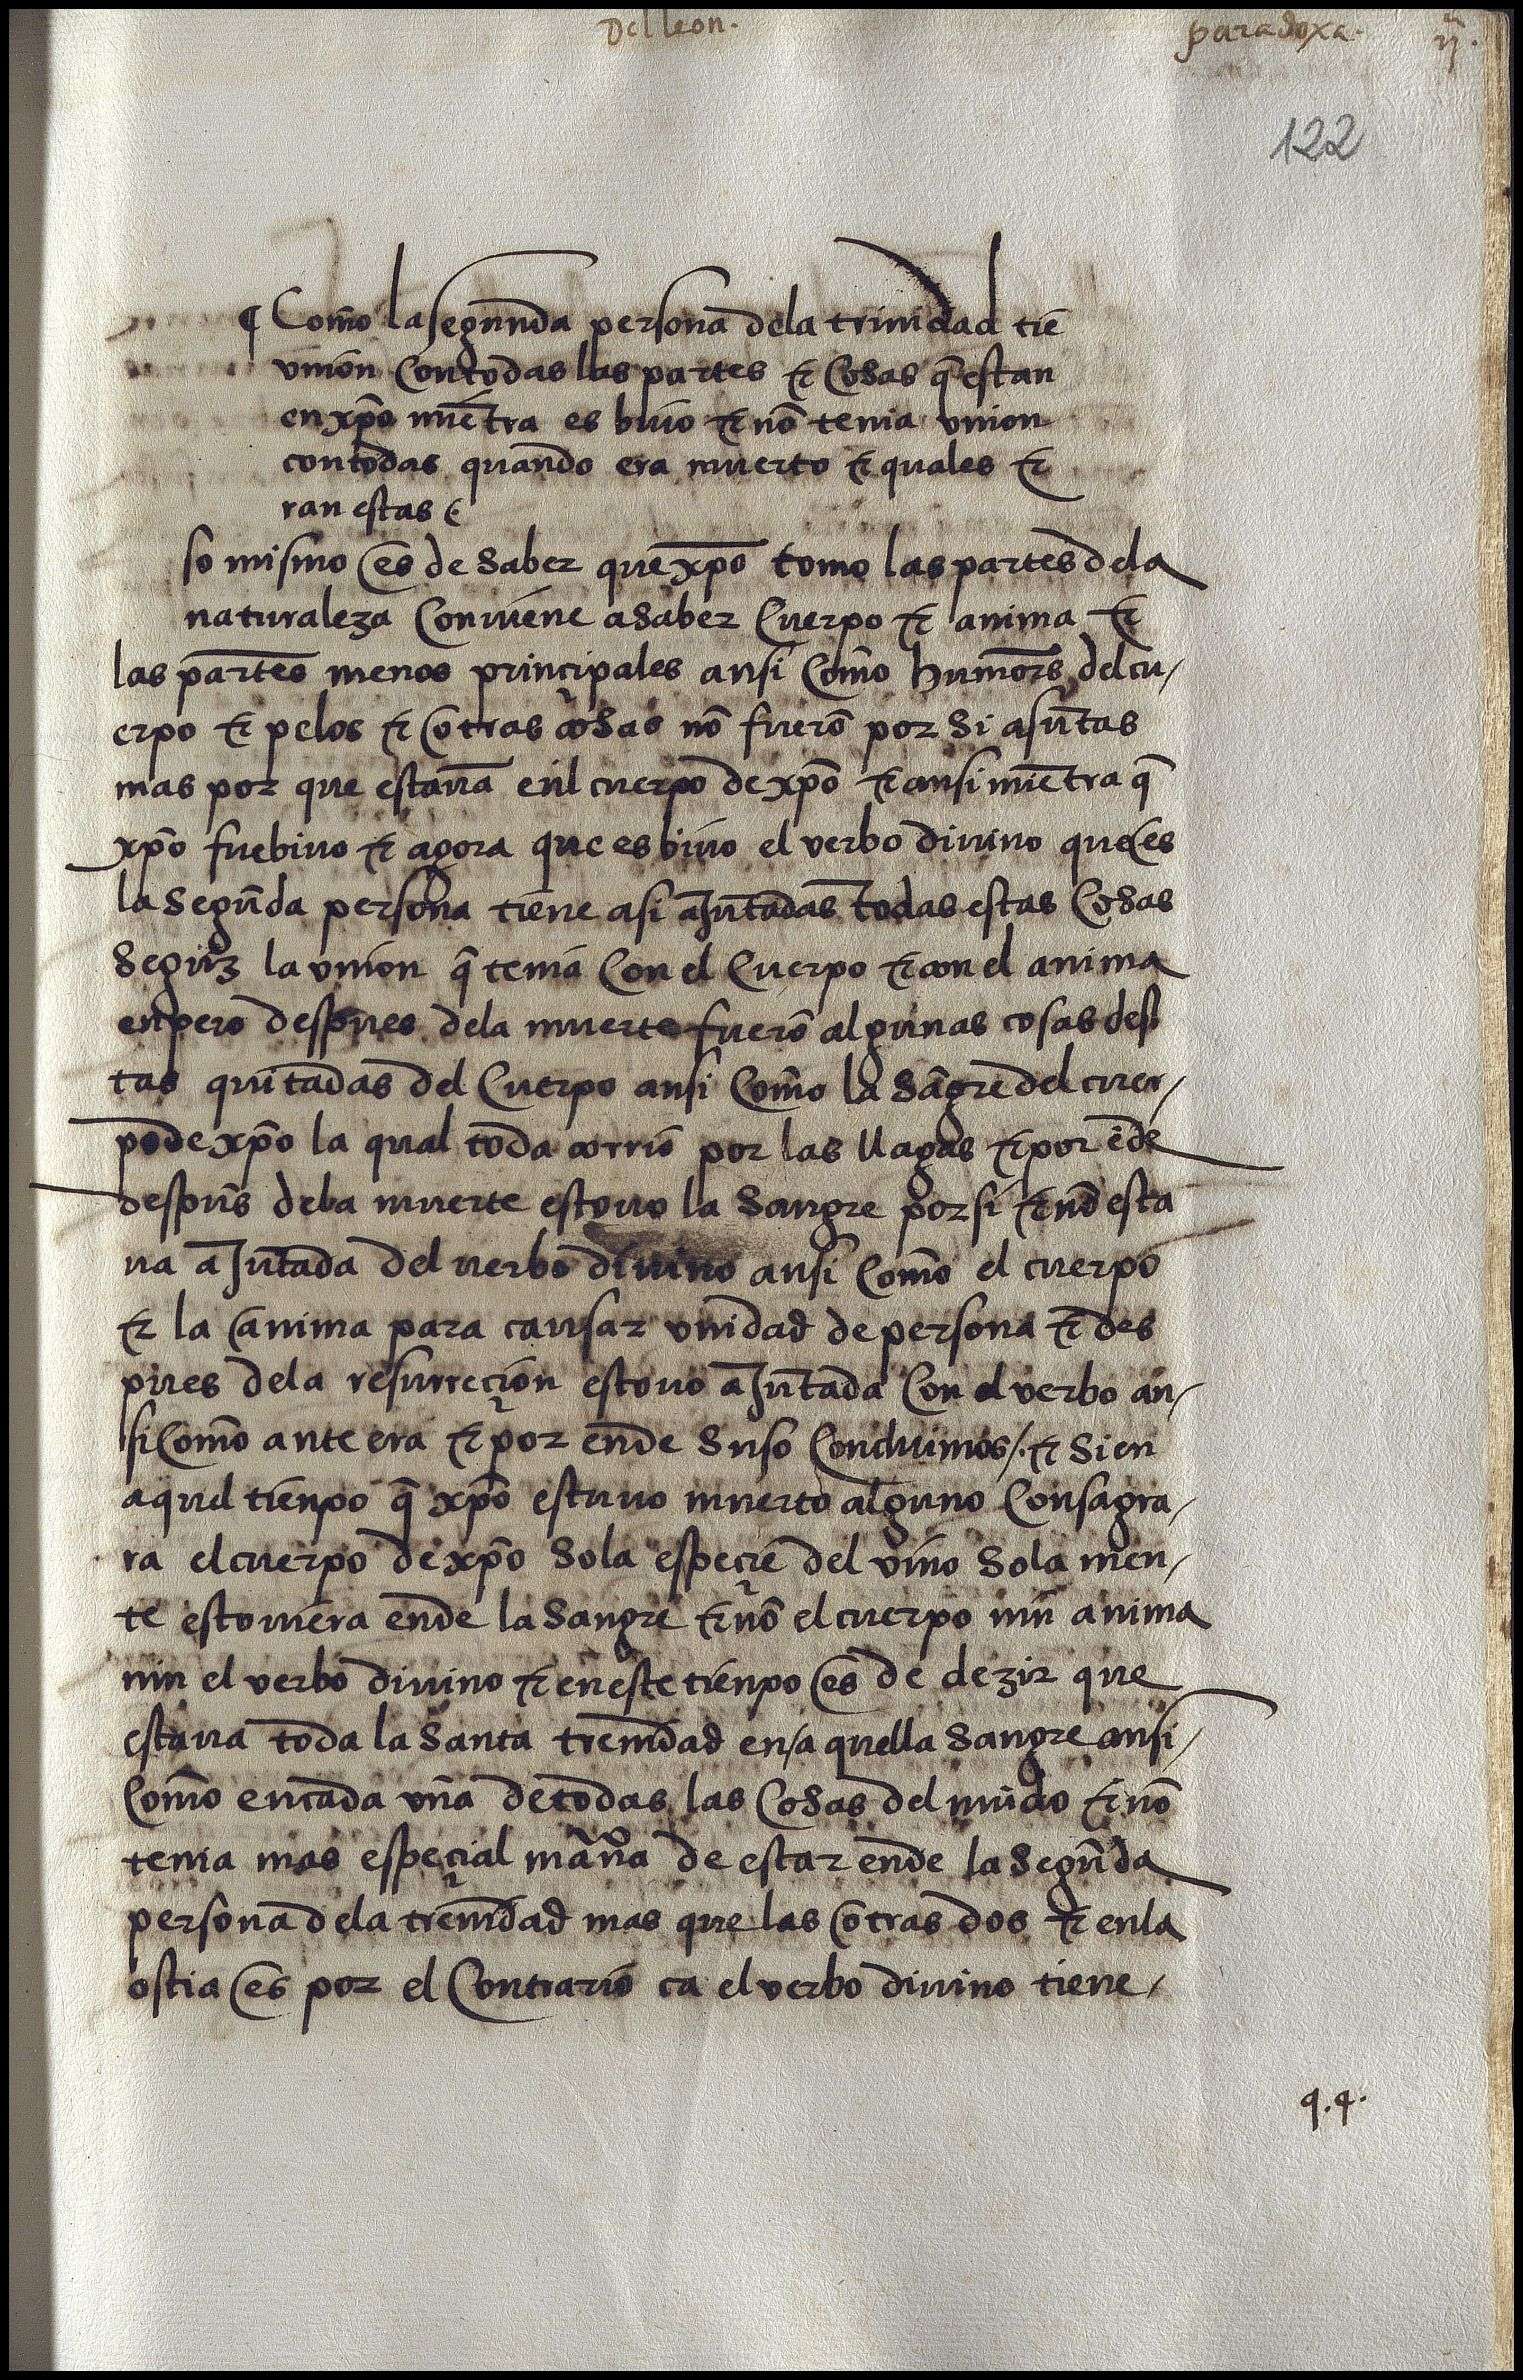 Del leon. paradoxa. ij.
122
¶ Como la segunda persona dela trinidad tiẽ
vnion Contodas las partes ⁊ Cosas q̃ estan
en xp̃o miẽtra es biuo ⁊ nõ tenia vnion
contodas quando era muerto ⁊ quales e
ran estas
so mismo es de saber que xp̃o tomo las partes dela
naturaleza Conuiene asaber Cuerpo ⁊ anima ⁊
las partes menos principales ansi Como humor̃s del cu/
erpo ⁊ pelos ⁊ otras cosas nõ fuerõ por si asũtas
mas por que estauã enl cuerpo de xp̃o ⁊ ansi miẽtra q̃
xp̃o fue biuo ⁊ agora que es biuo el verbo diuino que es
la segũda persona tiene asi aJũtadas todas estas Cosas
Segũd la vnion q̃ tenia Con el Cuerpo ⁊ con el anima
enpero despues dela muerte fuerõ algunas cosas des
tas quitadas del Cuerpo ansi Como la sãgre del cuer/
po de xp̃o la qual toda corrio por las llagas ⁊ por ẽde
despũs dela muerte estouo la Sangre por si ⁊ nõ esta
ua aJũtada del verbo diuino ansi Como el cuerpo
⁊ la anima para causar vnidad de persona ⁊ des
pues dela resurreçion estouo aJũtada Con el verbo an/
si Como ante era ⁊ por ende suso Concluimos /. ⁊ Si en
aquel tienpo q̃ xp̃o estuuo muerto alguno Consagra/
ra el cuerpo de xp̃o Sola espeçie del vino Sola men/
te estouiera ende la Sangre ⁊ nõ el cuerpo nin anima
nin el verbo diuino ⁊ en este tienpo es de dezir que
estaua toda la Santa trenidad en/a quella Sangre ansi/
Como en cada vna de todas las Cosas del mũdo ⁊ nõ
tenia mas espeçial mãña de estar ende la Segũda
persona dela trenidad mas que las otras dos ⁊ enla
ostia es por el Contrario ca el verbo diuino tiene/
q.4.